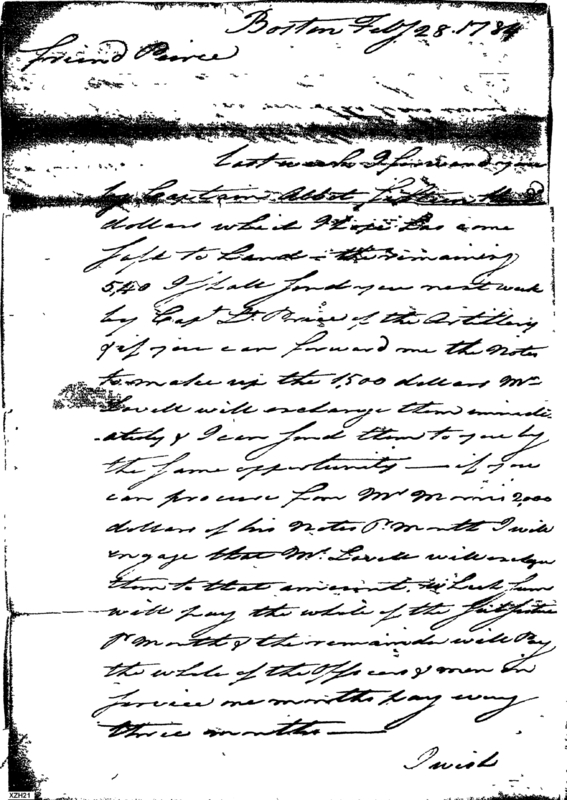 Boston Feby 28. 1784
friend Pierce
last week I forward you
by Captain Abbot fifteen Hund
dollars which I hope has come
safe to hand – the remaining
540 I shall send you next week
by Capt Lt. Price of the Artillery
& if you can forward me the Notes
to make up the 1500 dollars Mr
Lovell will exchange them immedi-
-ately & I can send them to you by
the same opportunity — if you
can procure from Mr Morris 2,000
dollars of his Notes Pr Month I will
engage that Mr. Lovell will exchge
them to that amount. which sum
will pay the whole of the
Pr Month & the remainder will Pay
the whole of the Officers & men in
service one months pay every
three months —
I wish
XZH21